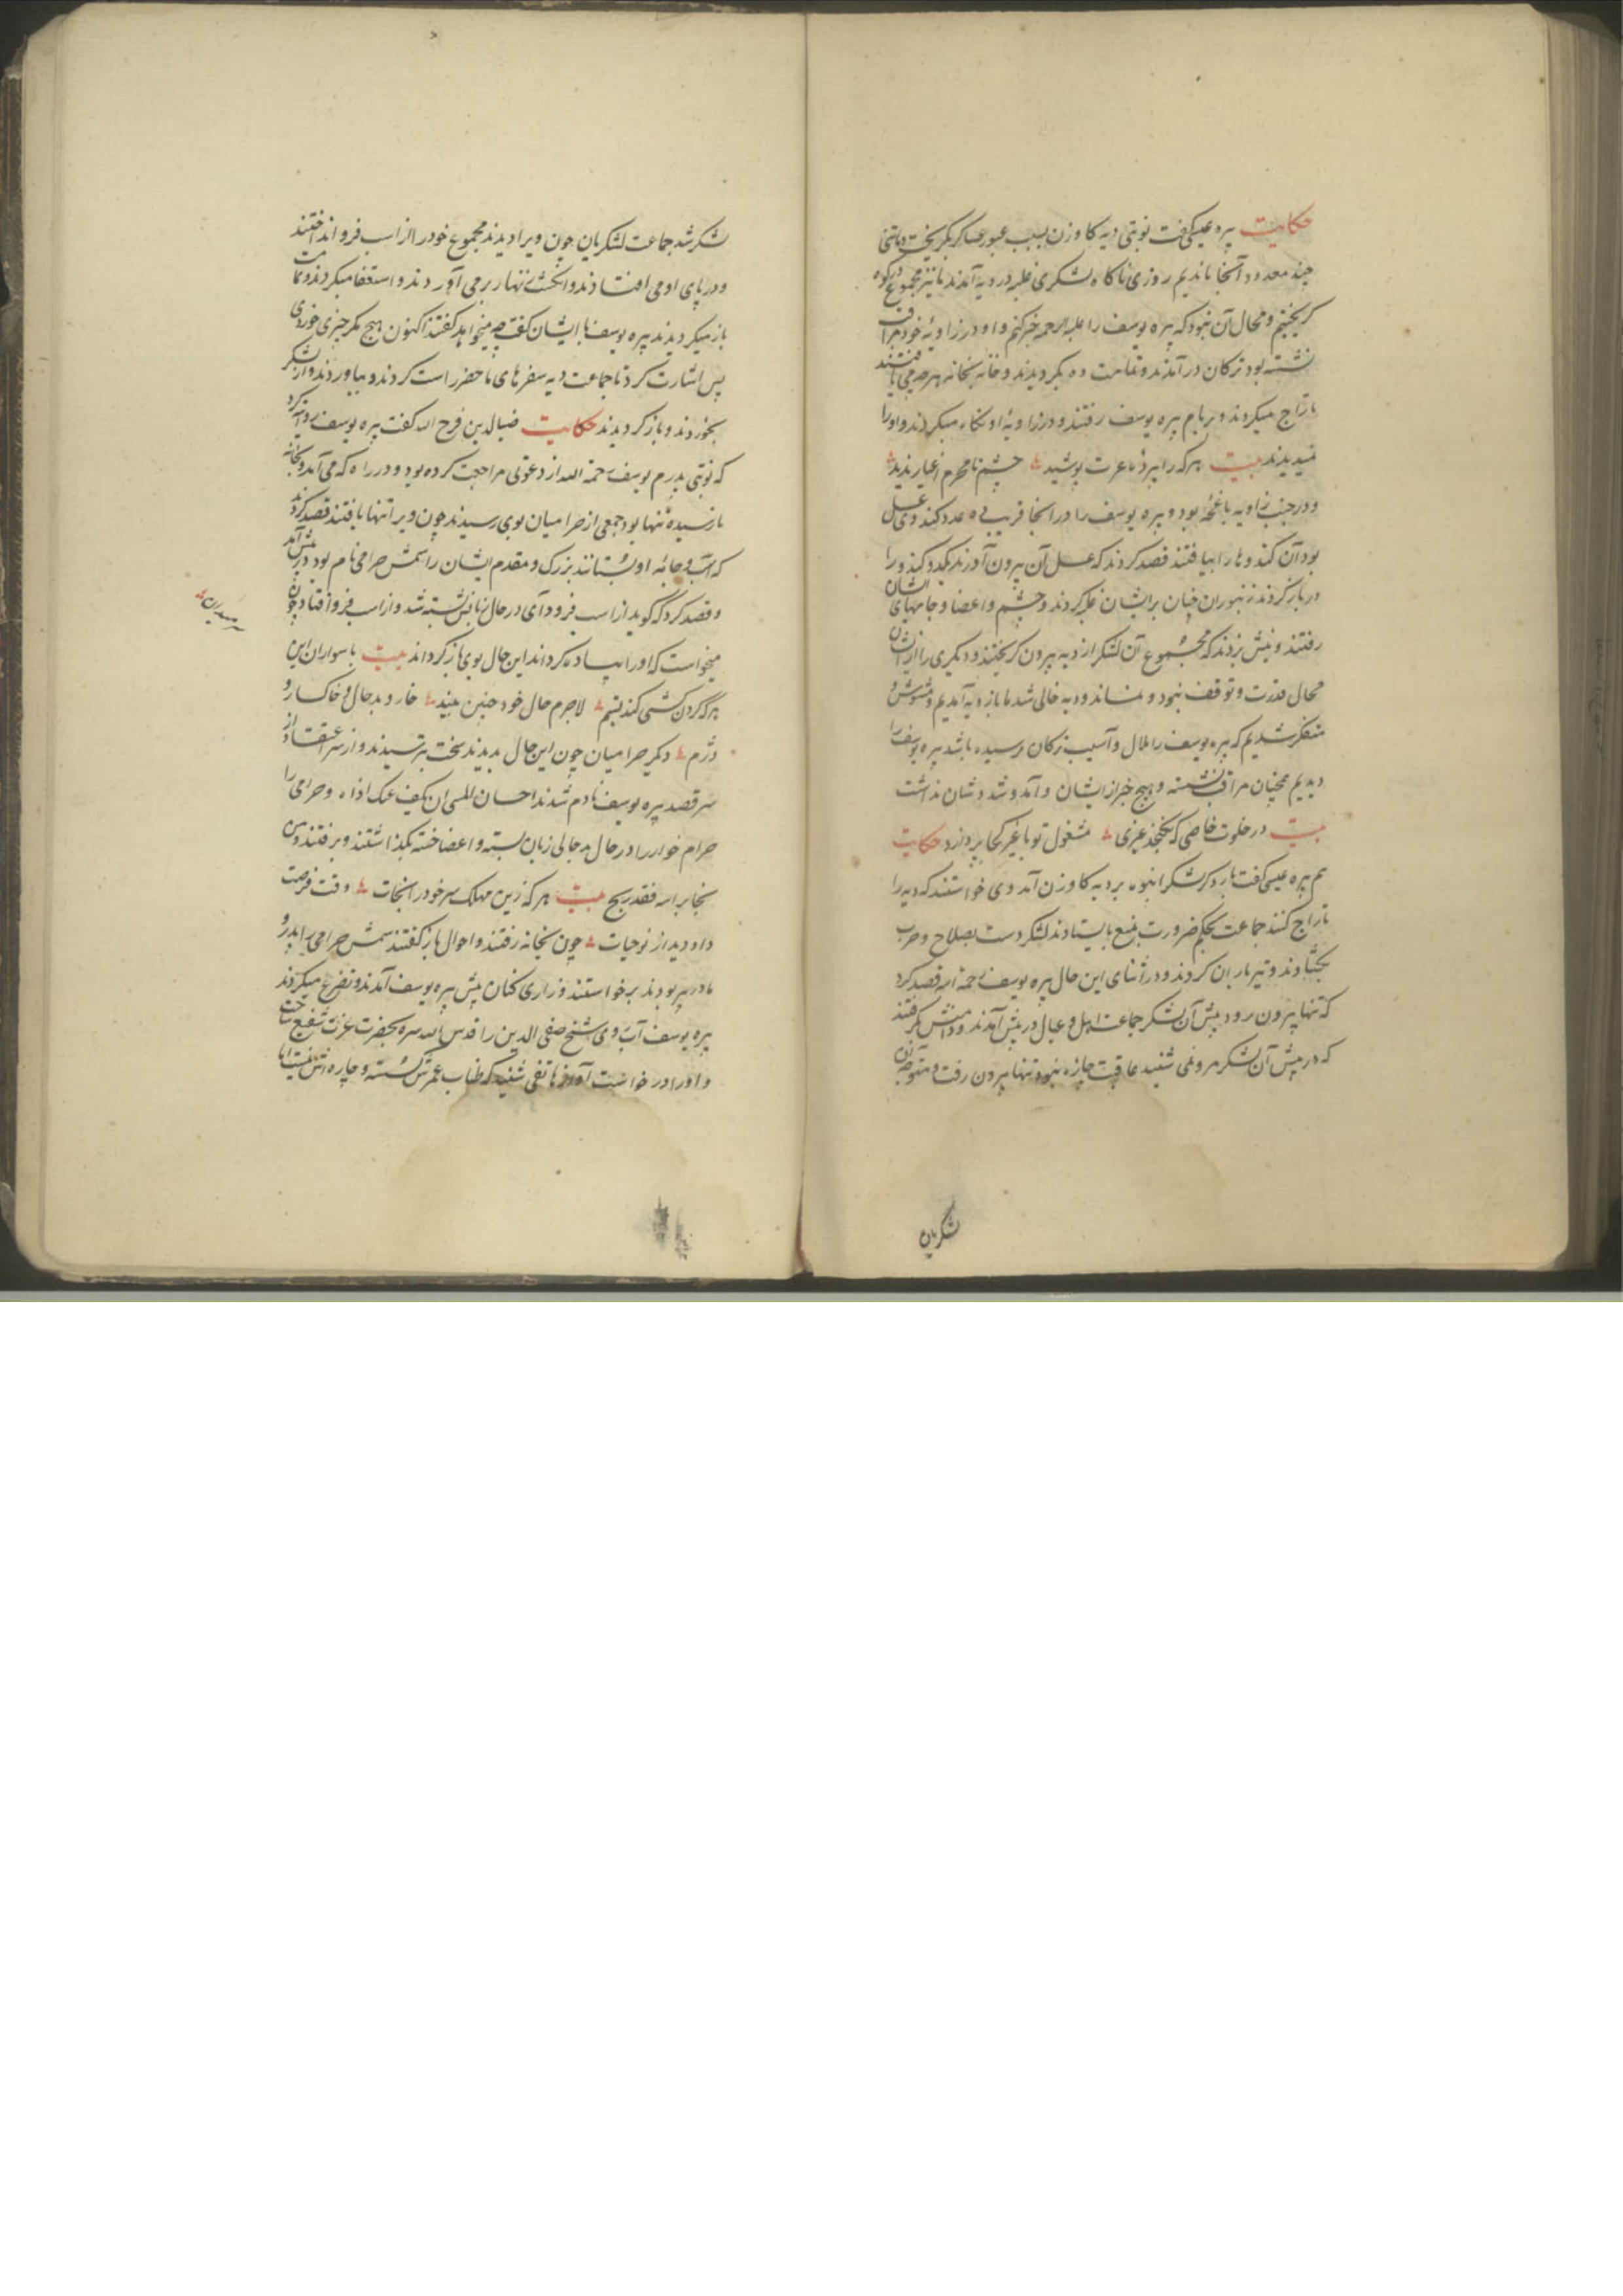 حکایت پره عیسی گفت نوبتی دیه کاوزن بسبب عبور عساکر بگریخت و ماتنی
چند معدود آنجا ماندیم روزی ناکاه لشکری غلبه در دیه آمدند ما نیز مجموع در کوه
کریختیم و مجال آن نبود که پره یوسف را علیه الرحمه خبر کنم و او در زاویه خود مراقب
نشسته بود ترکان در آمدند و تمامت ده بکردیدند و خانه بخانه هر چه می یافتند
تاراج میکردند و بر بام پره یوسف رفتند و در زاویه او نکاه میکردند و او را
نمیدیدند بیت هر که را پردۀ عزت پوشید چشم نامحرم اغیار ندید
و در جنب زاویه باغچۀ بود و پره یوسف را در آنجا قریب ده عدد کندوی عسل
بود آن کندوها را بیافتند قصد کردند که عسل آن بیرون آورند یک عدد کندو را
در باز کردند زنبوران چنان بر ایشان غلبه کردند و چشم و اعضا و جامهای ایشان
رفتند و نیش بزدند که مجموع آن لشکر از دیه بیرون کریختند و دیکری را از ایشان
مجال قدرت و توقف نبود و نماند و دیه خالی شد ما باز دیه آمدیم و مشوش و
متفکر شدیم که پره یوسف را ملال و آسیب ترکان رسیده باشد پره یوسف را
دیدیم همچنان مراقب نشسته و هیچ خبر از ایشان و آمد و شد ایشان نداشت
بیت در خلوت خاصی که نکنجد غیری مشغول تو با غیر کجا پردازد حکایت
هم پره عیسی گفت بار دکر لشکر انبوه بر دیه کاوزن آمد و می خواستند که دیه را
تاراج کنند جماعت بحکم ضرورت بمنع بایستادند لشکر دست بصلاح و حرب
بکشادند و تیر باران کردند و در اثنای این حال پره یوسف رحمة الله قصد کرد
که تنها بیرون رود پیش آن لشکر جماعت اهل و عیال در پیش آمدند و دامنش بگرفتند
که در پیش آن لشکر مرو نمی شنید عاقبت چاره نبود تنها بیرون رفت و متوجه آن
لشکریان
لشکر شد جماعت لشکریان چون ویرا دیدند مجموع خود را از اسب فرو انداختند
و در پای او می افتادند و انکشت زنهار بر می آوردند و استعفا میکردند و تمامت
باز میکردیدند پره یوسف با ایشان گفت چه میخواهید گفتند اکنون هیچ مکر چیزی خوردنی
پس اشارت کرد تا جماعت دیه سفرهای ما حضر راست کردند و بیاوردند و آن لشکر
بخوردند و باز کردیدند حکایت ضیاالدین فرج الله گفت پره یوسف روایت کرد
که نوبتی پدرم یوسف رحمة الله از دعوتی مراجعت کرده بود و در راه که می آمد و بخانه
نارسیده تنها بود جمعی از حرامیان بوی رسیدند چون ویرا تنها یافتند قصد کردند
که اسب و جامۀ او بستانند بزرک و مقدم ایشان را شمس حرامی نام بود در پیش آمد
و قصد کرد که گوید از اسب فرود آی در حال زبانش بسته شد و از اسب فرو افتاد چون
میخواست که او را پیاده کرداند این حال بوی باز کرداند بیت با سواران این
هر که گردن کشی کند بستم لاجرم حال خود چنین بیند خار و بدحال و خاکسار و
دژم دیکر حرامیان چون این حال بدیدند سخت بترسیدند و از سر اعتقاد از
سر قصد پره یوسف نادم شدند احسان للمسی ان یکیف عنک اذاه و حرامی را
حرام خوار را در حال بدحالی زبان بسته و اعضا خسته بکذاشتند و برفتند و من
نجا براسه فقد ربح بیت هر که زین مهلک سر خود را نجات وقت فرصت
داد دید از نو حیات چون بخانه رفتند و احوال باز گفتند شمس حرامی را پدر و
مادر پیر بودند برخواستند و زاری کنان پیش پره یوسف آمدند و تضرع میکردند
پره یوسف آب روی شیخ صفی الدین را قدس الله سره بحضرت عزت شفیع ساخت
و او را درخواست آواز هاتفی شنید که طناب عمرش کسسته و چاره اش نیست اما